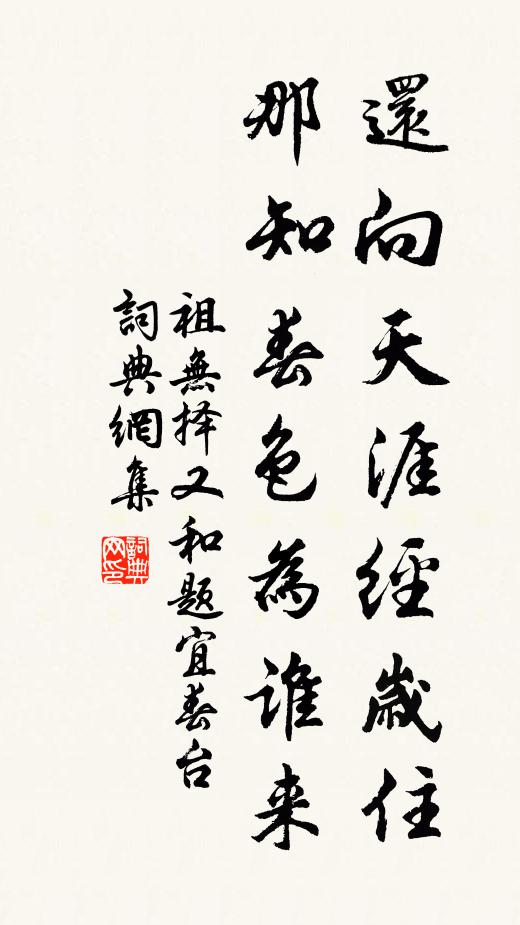 還向天涯經歲住
那知春色為誰来
祖無择又和题宜春台
詞典網集
詞典
网印